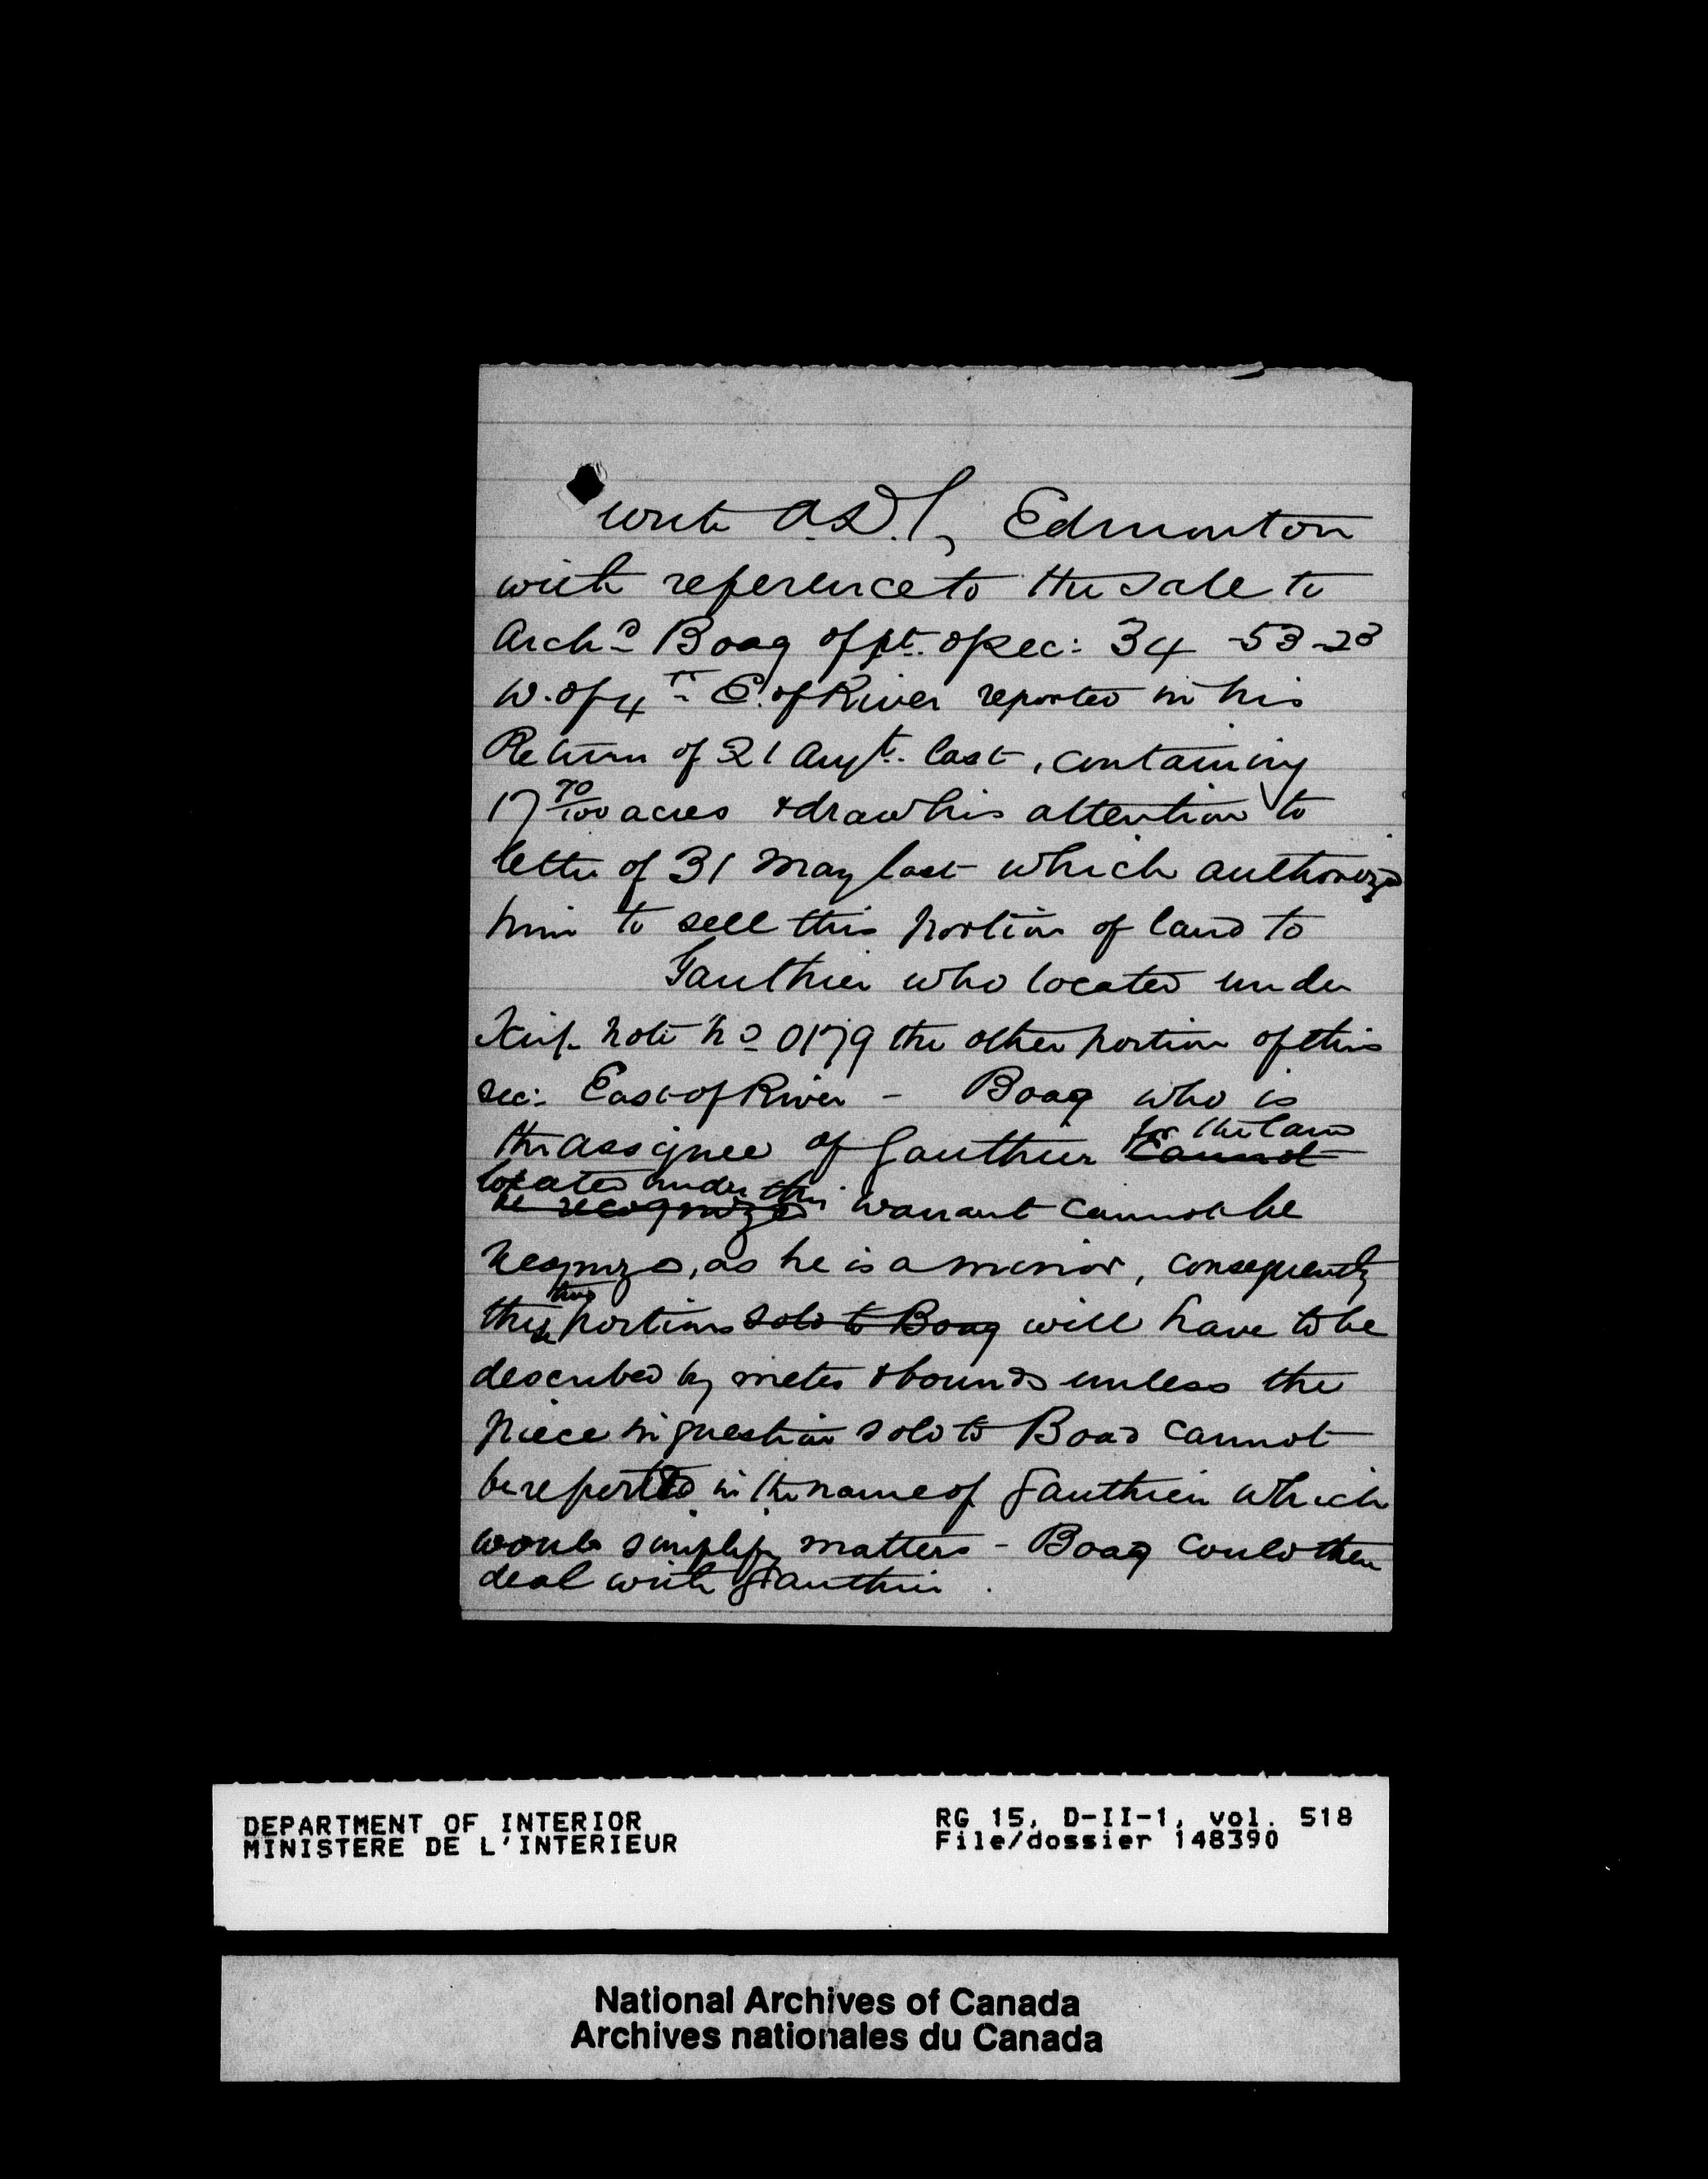 write A.D.L, Edmonton
with reference to the sale to
Archd Boag of pt. of Sec: 34 -53-23
W. of 4th E. of River reported in his
Return of 21 Augt. last, containing
17 70/100 acres & draw his attention to
letter of 31 May last which authorized
him to sell this portion of land to
Gauthier who located under
Scrip note No 0179 the other portion of this
sec: East of River - Boag who is
the assignee of Gauthier cannot for the land
be recognized located under this warrant cannot be
recognized, as he is a minor, consequently
these two portions sold to Boag will have to be
described by metes & bounds unless the
piece in question sold to Boag cannot
be reported in the name of Gauthier which
would simplify matters - Boag could then
deal with Gauthier.
DEPARTMENT OF INTERIOR
MINISTERE DE L'INTERIEUR
RG 15, D-II-1, vol. 518
File/dossier 148390
National Archives of Canada
Archives nationales du Canada